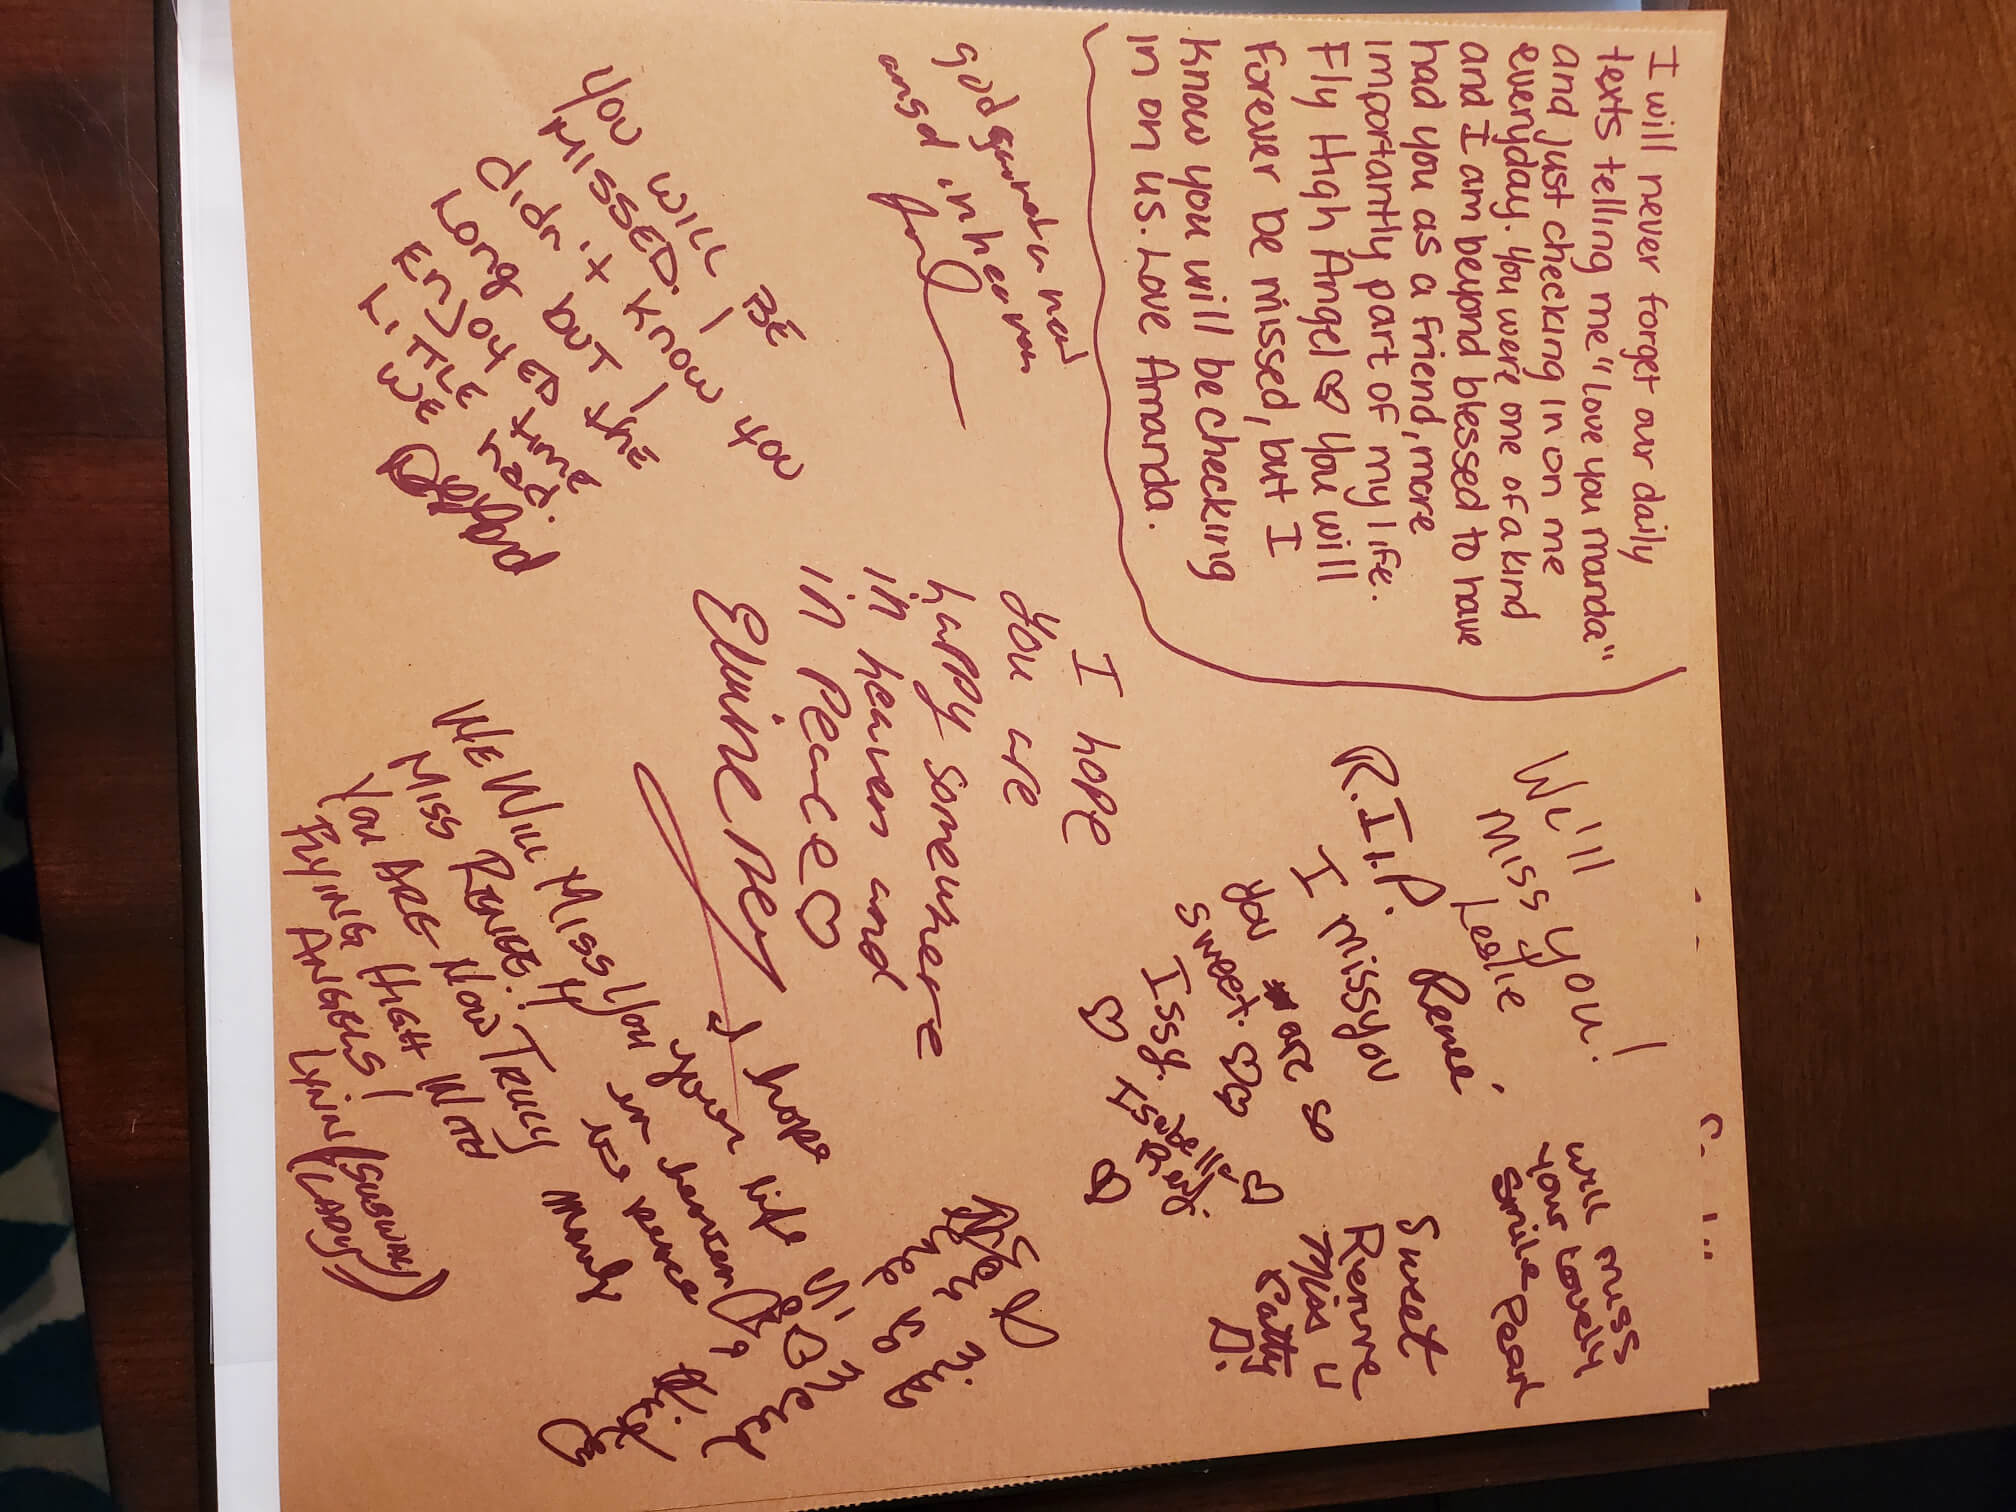 I will never forget our daily
texts telling me "love you manda"
and just checking in on me
everyday. You were one of a kind
and I am beyond blessed to have
had you as a friend, more
importantly part of my life.
Fly High Angel ♡ You will
Forever be missed, but I
know you will be checking
in on us. Love Amanda.
god new
angel in heaven
YOU WILL BE
MISSED. I
didn't know you
Long but I
ENJOYED the
LITTLE time
WE had.
I hope
you are
happy somewhere
in heaven and
in peace ♡
WE WILL MISS YOU
MISS RENEE! 
YOU ARE NOW TRULY
FLYING HIGH WITH
ANGELS!
LYNN (SUBWAY
LADY)
Will
Miss you!
Leslie
R.I.P. Renee'
I miss you
You are so
sweet. ♡♡
Issy. ♡
♡ ♡ ♡
Will miss
your lovely
smile Pearl
Sweet
Renne
Miss u
Patty
D.
I hope
your life
in heaven is
peace